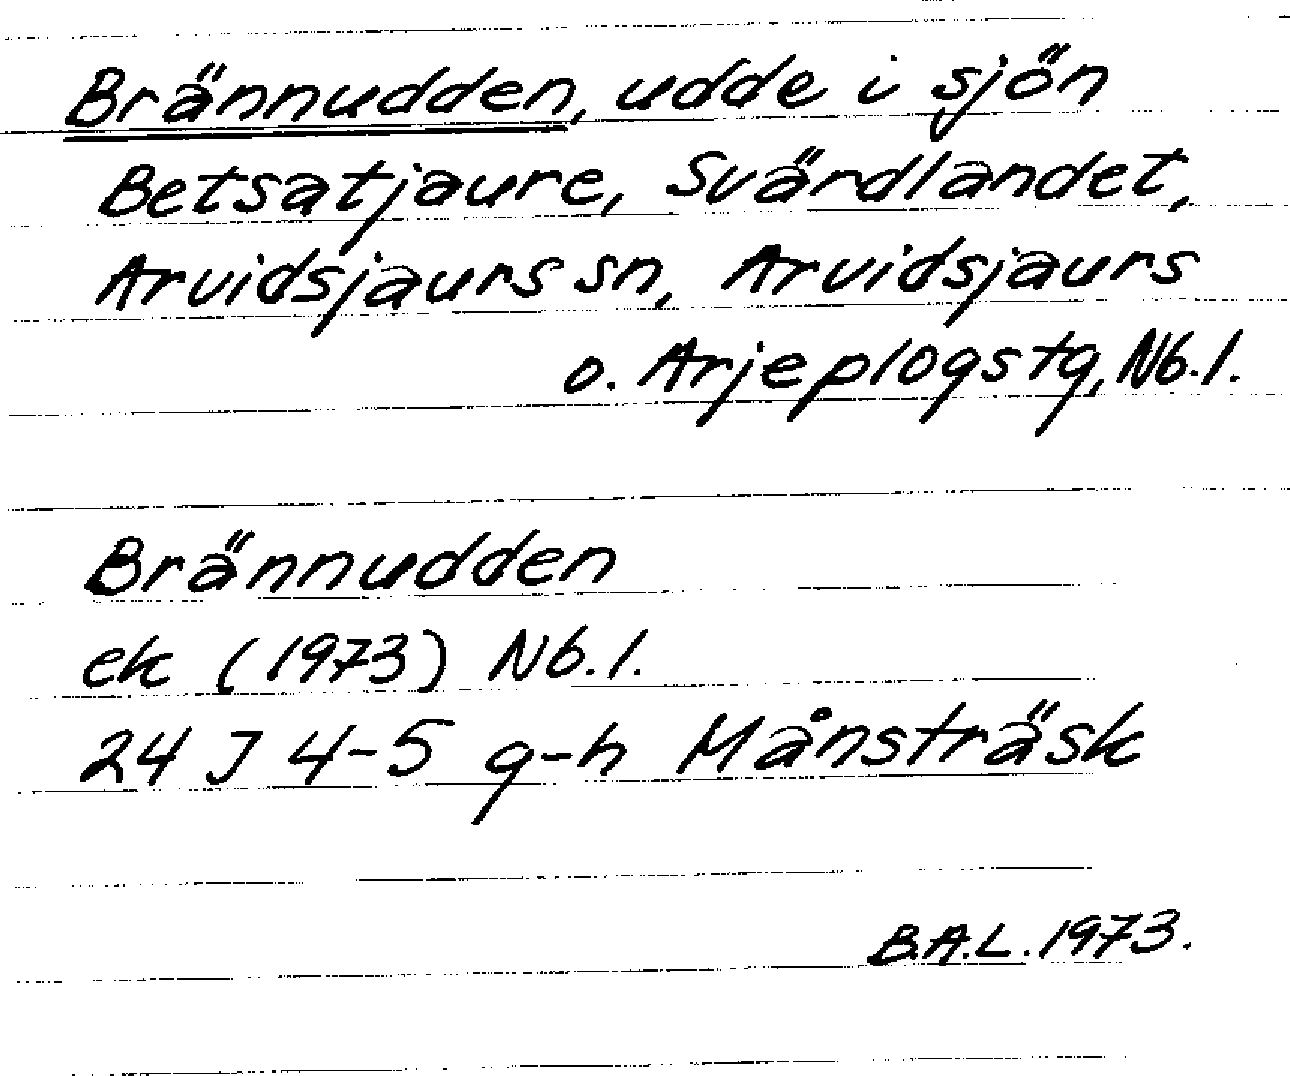 Brännudden, udde i sjön
Betsatjaure, Svärdlandet,
Arvidsjaurs sn, Arvidsjaurs
o. Arjeplogs tg, Nb. l.
Brännudden
ek (1973) Nb. l.
24 J 4-5 g-h Månsträsk
B.A.L. 1973.